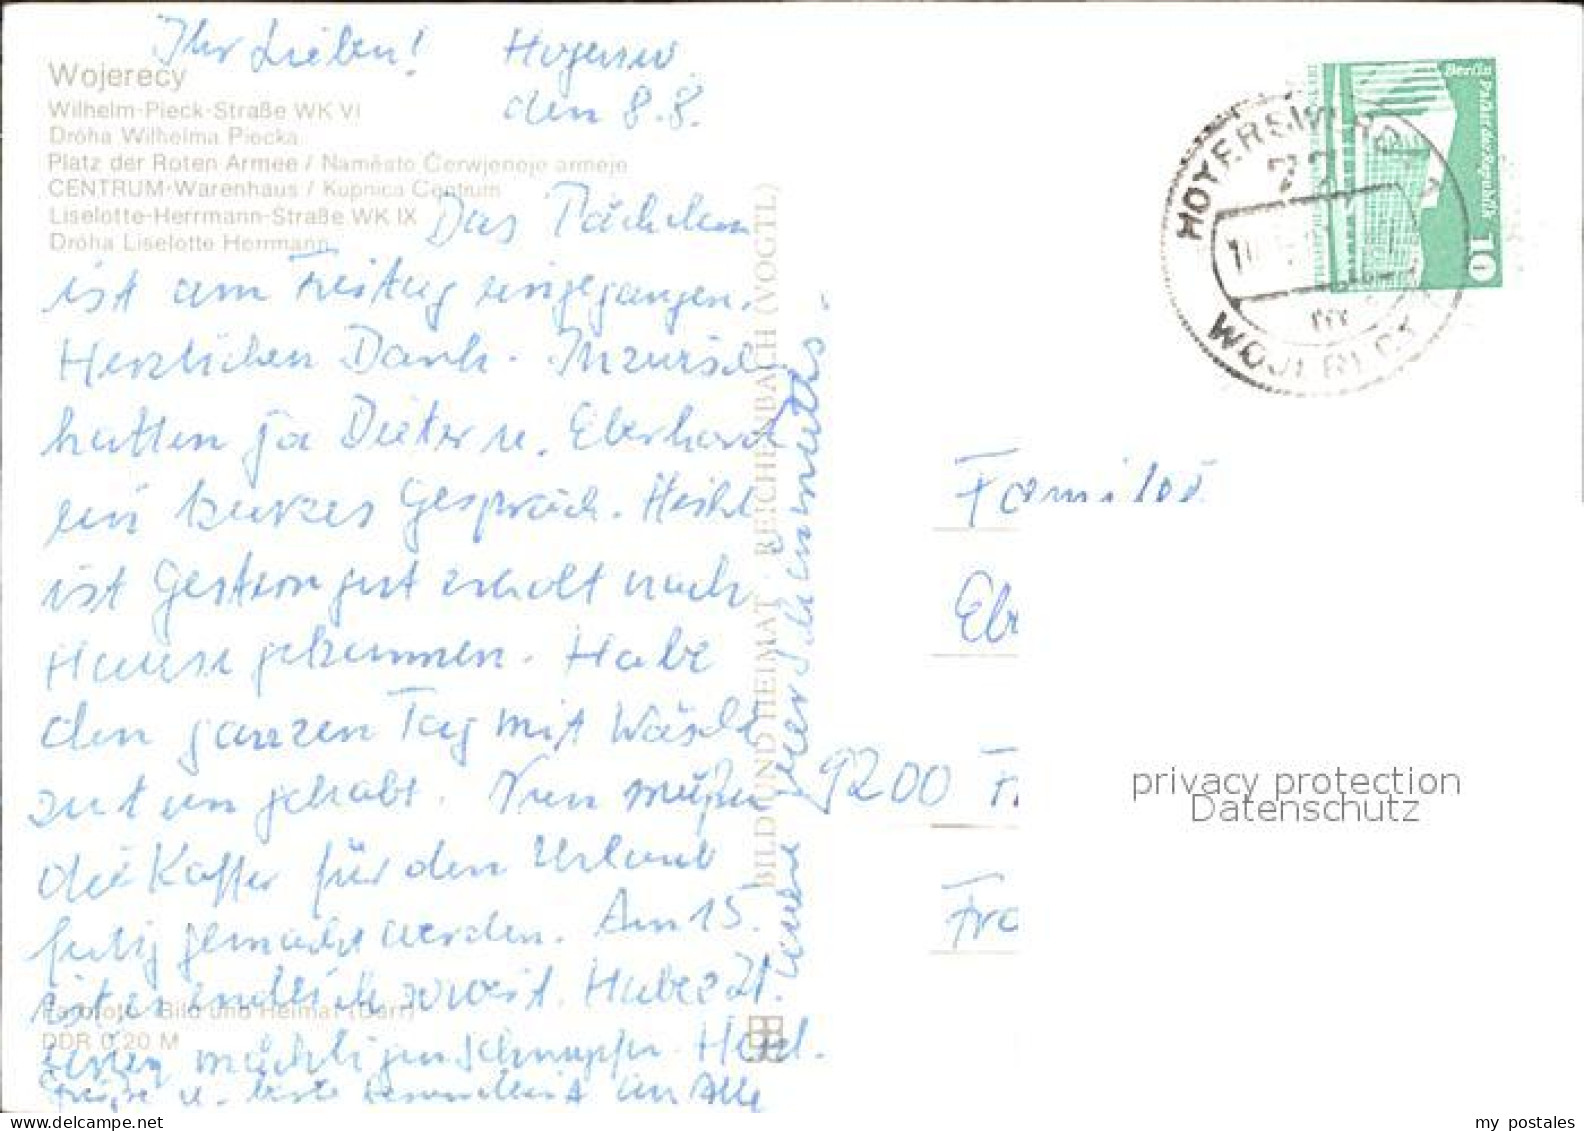 Ihr Lieben! Hoyersw.
den 8.8.
Wojerecy
Wilhelm-Pieck-Straße WK VI
Dróha Wilhelma Piecka
Platz der Roten Armee / Naměsto Čerwjeneje armeje
CENTRUM-Warenhaus / Kupnica Centrum
Liselotte-Herrmann-Straße WK IX
Dróha Liselotte Herrmann
Das Päckchen
ist am Freitag eingegangen.
Herzlichen Dank. Inzwisch
hatten ja Dieter u. Eberhard
ein kurzes Gespräch.
ist gestern gut erholt nach
Hause gekommen. Habe
den ganzen Tag mit Wäsche
zu tun gehabt. Nun müßen
die Koffer für den Urlaub
fertig gemacht werden. Am 15.
ist es endlich soweit. Habe z.Zt.
einen mächtigen Schnupfen. Herzl.
Grüße u. beste Gesundheit an Alle
Farbfoto: Bild und Heimat (Darr)
DDR 0,20 M
BILD UND HEIMAT REICHENBACH (VOGTL)
Berlin Palast der Republik
10
HOYERSWERDA 1
WOJERECY
Familie
Ebr
9200 Fr
Fra
privacy protection
Datenschutz
my postales